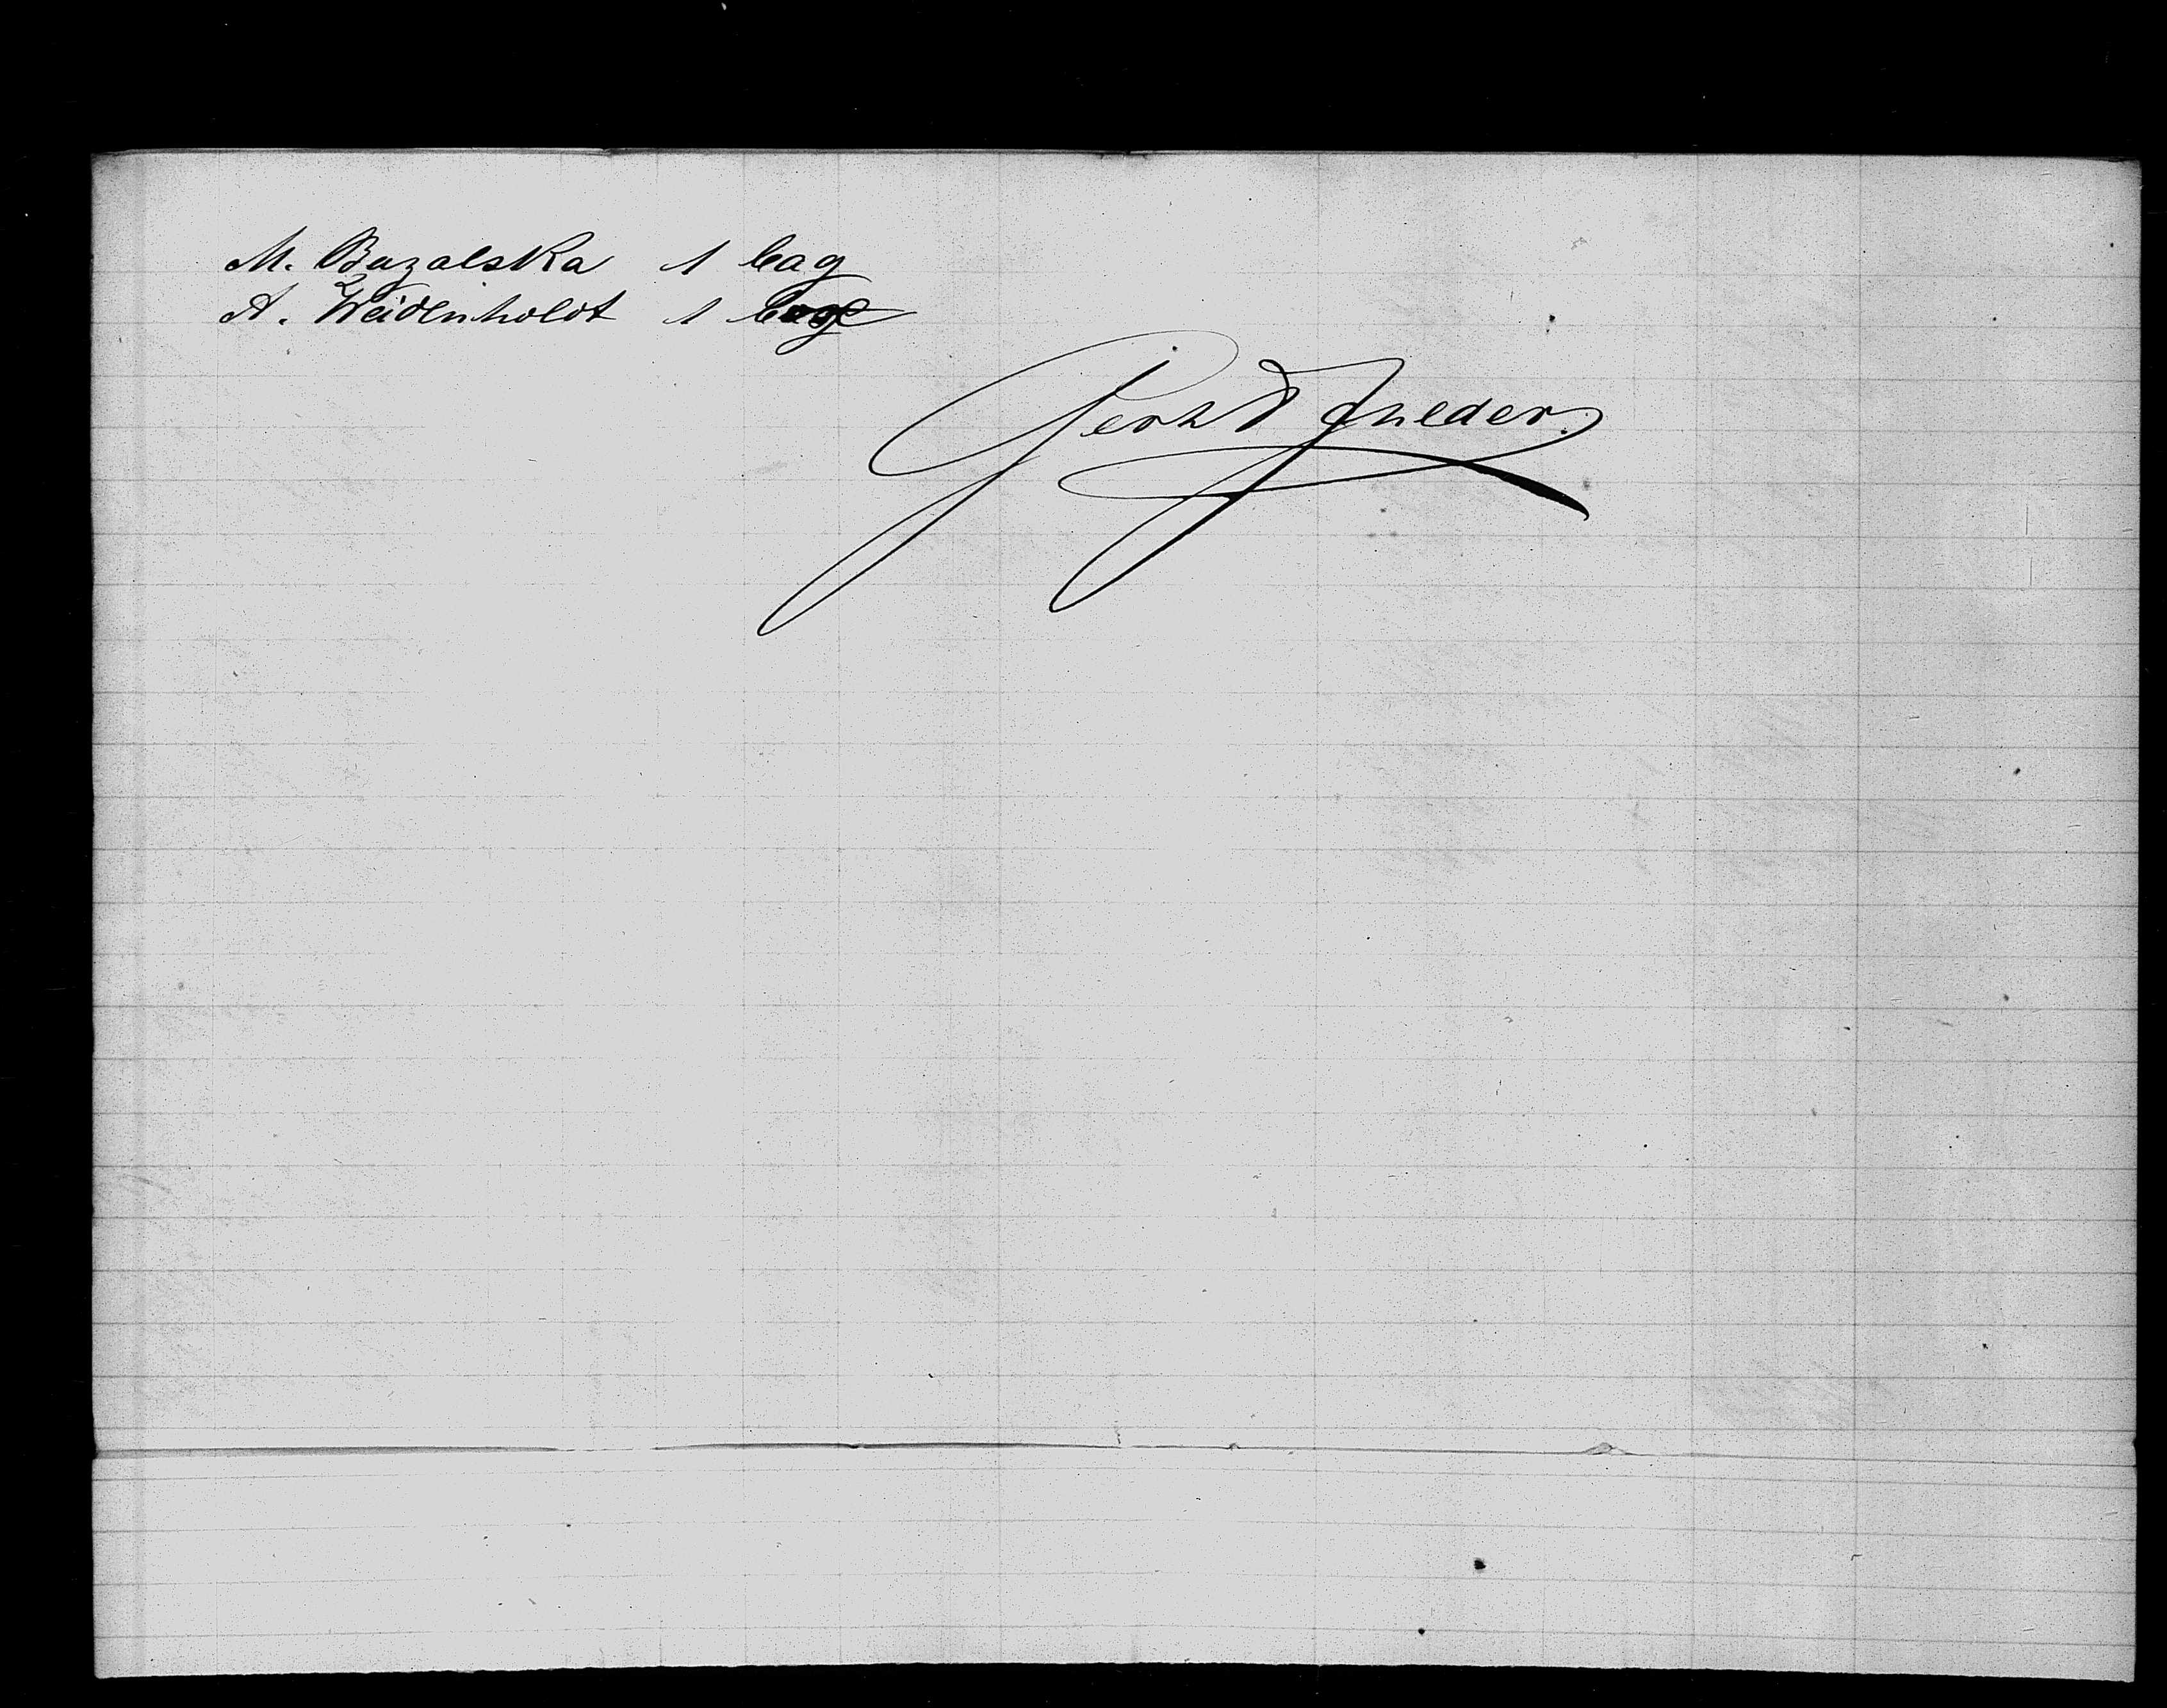 M. Bazalska 1 bag
A. Weidenholdt 1 bag
Gerhd Ihleder.